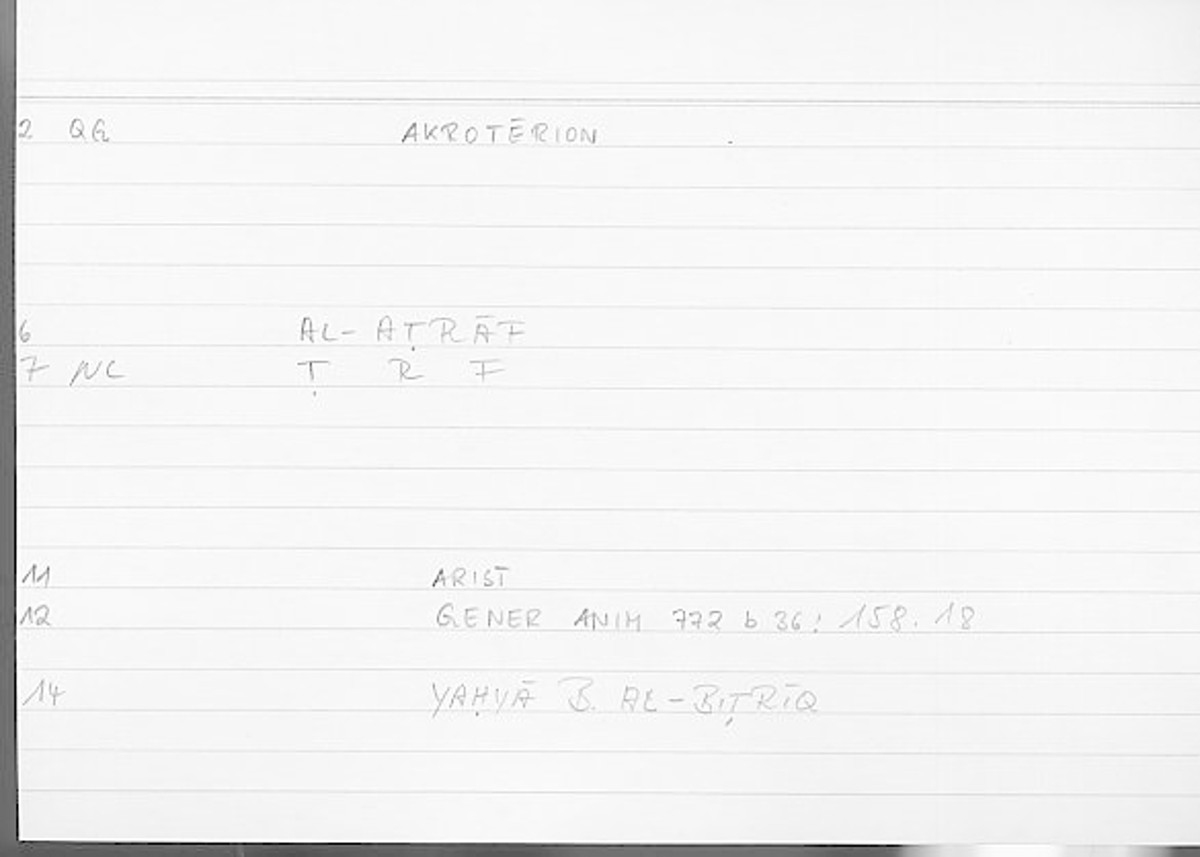 2 QG AKROTĒRION
6 AL-AṬRĀF
7 NC Ṭ R F
11 ARIST
12 GENER ANIM 772 b 36: 158.18
14 YAḤYĀ B. AL-BIṬRĪQ